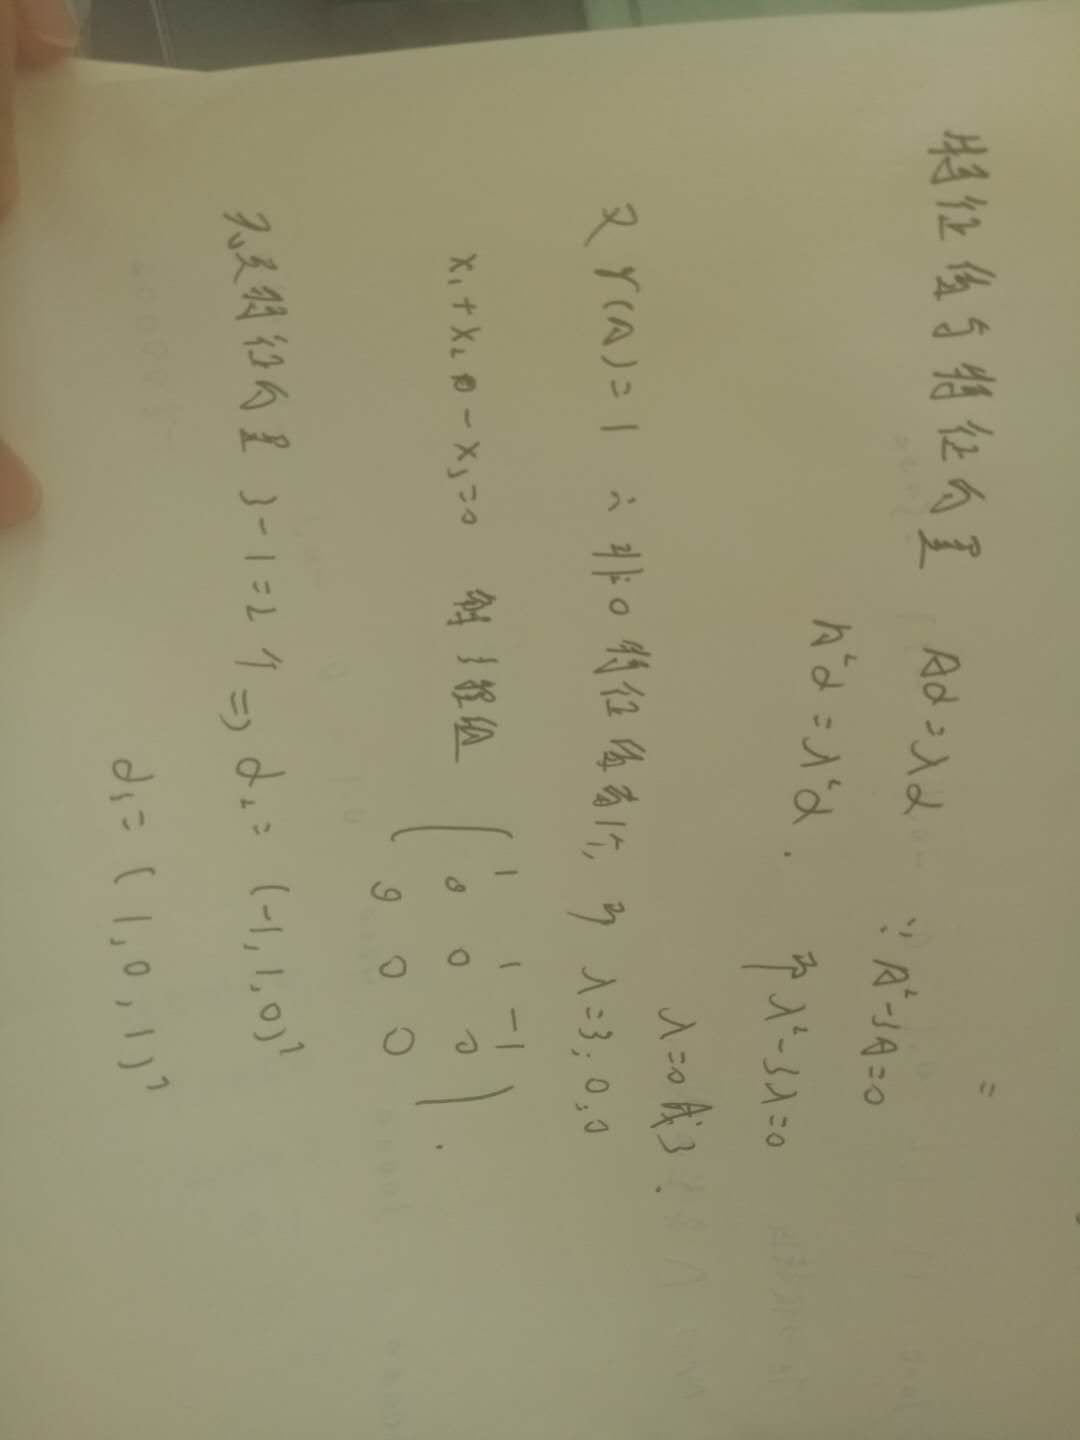 特征值与特征向量 Aα=λα
∵A²-3A=0
A²α=λ²α. 即λ²-3λ=0
λ=0或3.
又 r(A)=1 ∴非0特征值有1个, 即 λ=3; 0,0
x₁+x₂-x₃=0 解
( 1 1 -1
0 0 0
0 0 0 ).
特征向量 3-1=2个 => α₂=(-1,1,0)ᵀ
α₃=(1,0,1)ᵀ